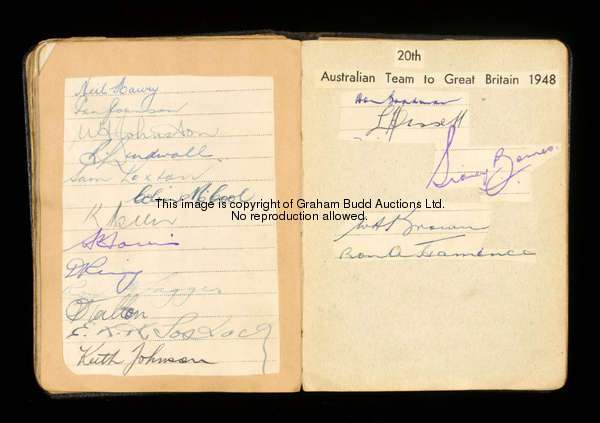 Neil Harvey
Ian Johnson
W A Johnston
R Lindwall.
Sam Loxton
Colin McCool
K Miller
D Ring
D Tallon
Keith Johnson
20th
Australian Team to Great Britain 1948
Don Bradman
L Hassett
Sidney Barnes.
W A Brown
Ron A Hamence
This image is copyright of Graham Budd Auctions Ltd.
No reproduction allowed.